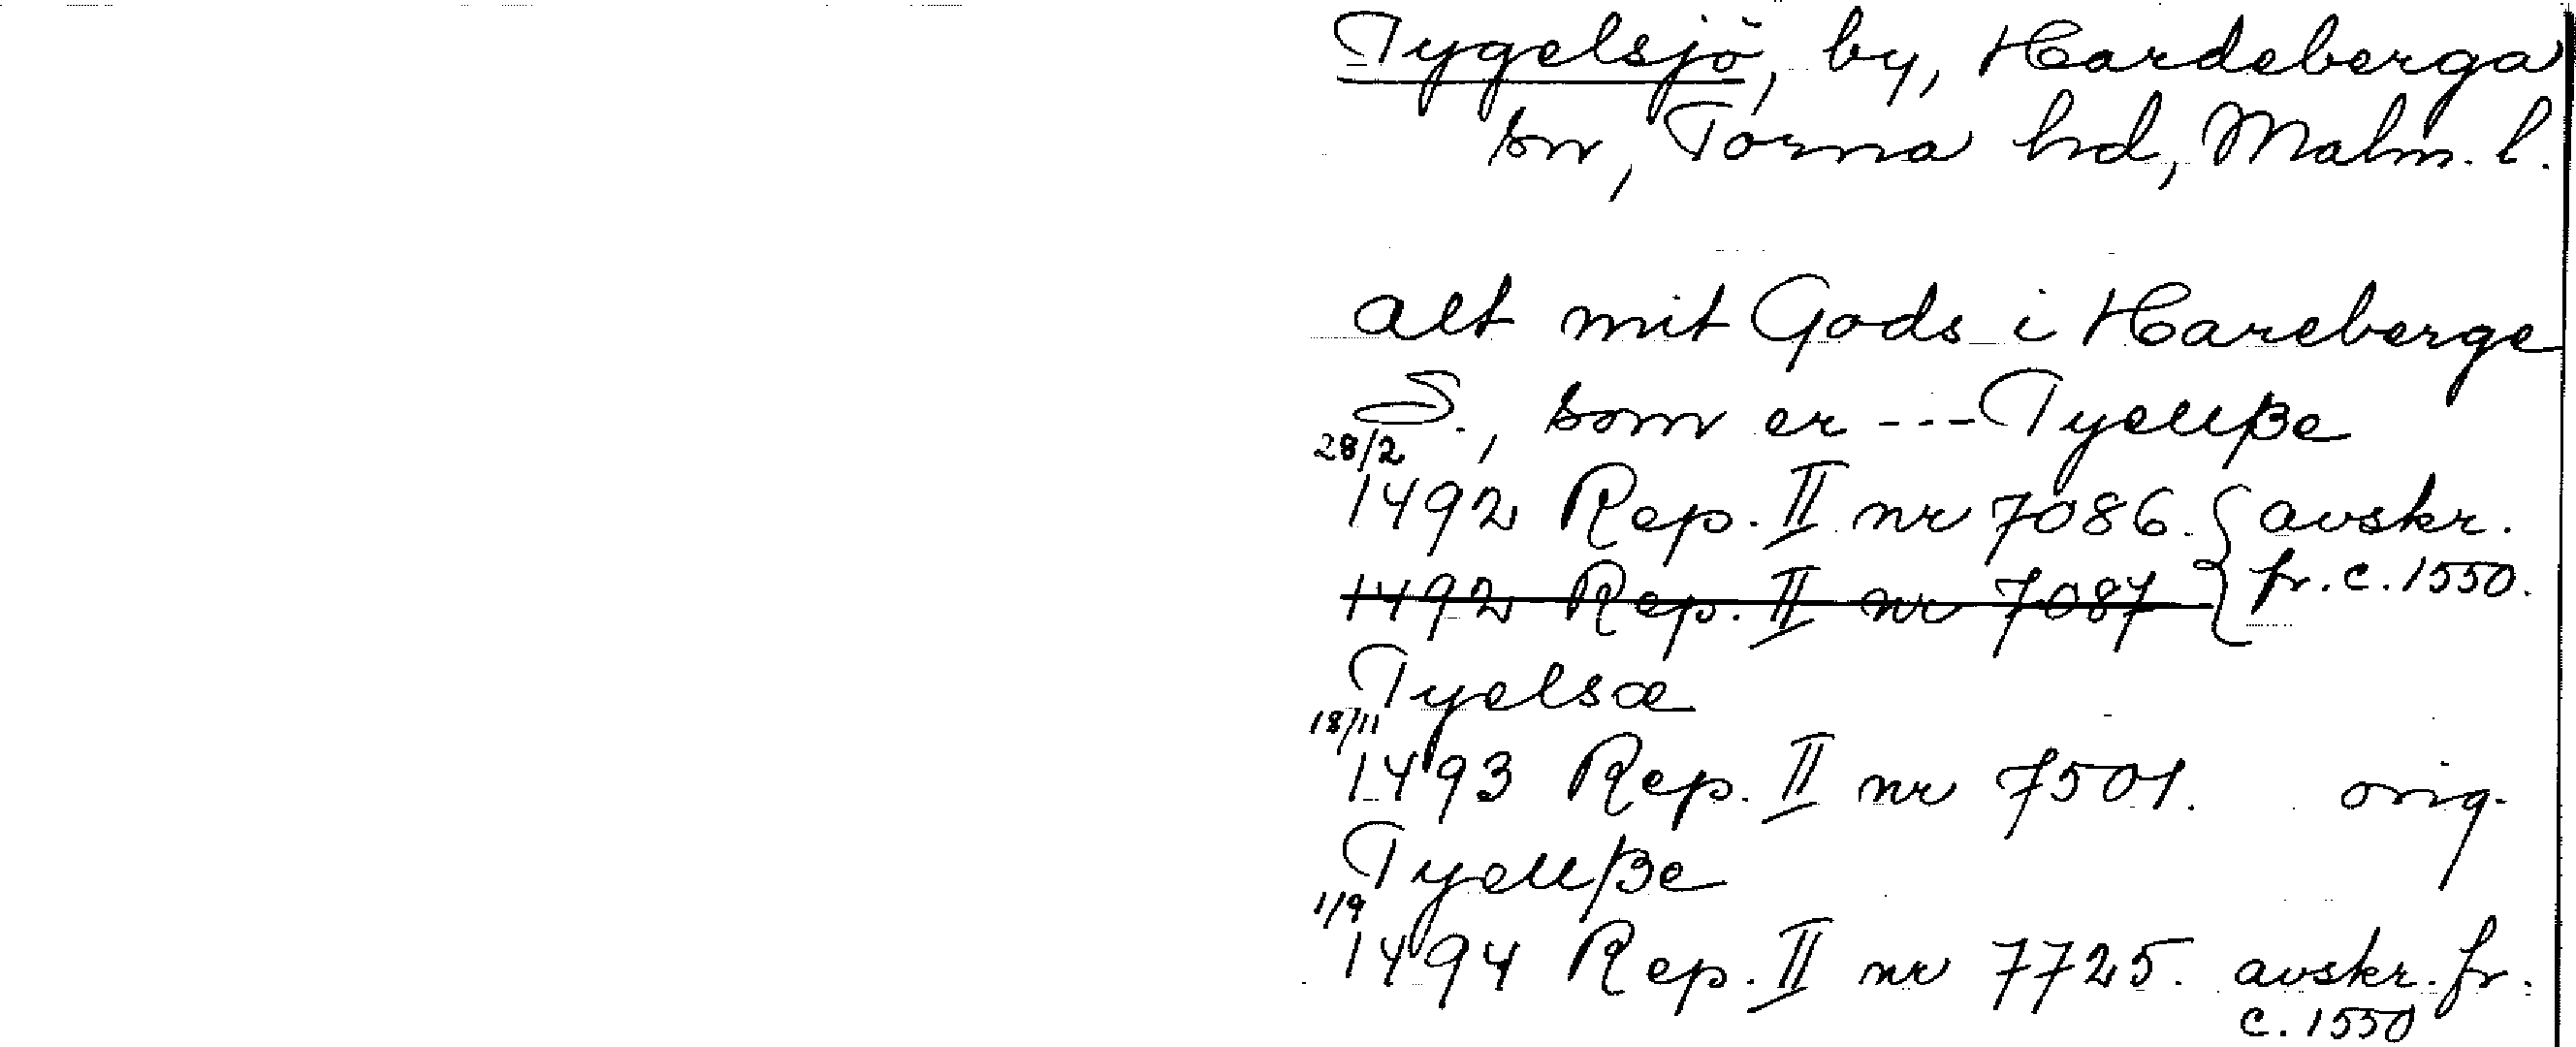 Tygelsjö, by, Hardeberga
sn, Torna hd, Malm. l.
alt mit Gods i Hareberge
S., som er --- Tyellße
28/2
1492 Rep. II nr 7086. avskr.
1492 Rep. II nr 7087 fr. c. 1550.
Tyelsæ
18/11
1493 Rep. II nr 7501. orig.
Tyellße
1/9
1494 Rep. II nr 7725. avskr. fr.
c. 1550